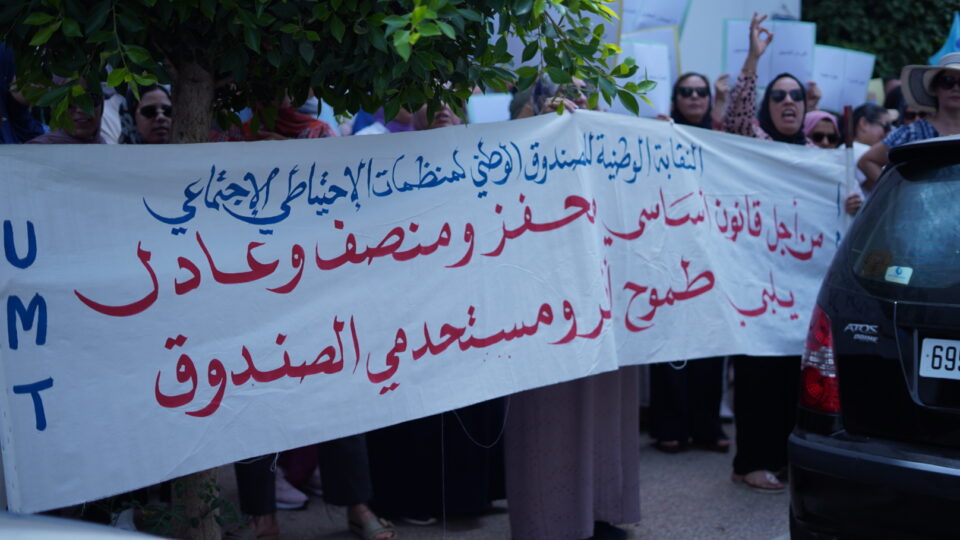 النقابة الوطنية للصندوق الوطني لمنظمات الإحتياطي الإجتماعي
من أجل قانون أساسي يحفز ومنصف وعادل
يلبي طموح ومستخدمي الصندوق
UMT
ATOS
PRIME
695